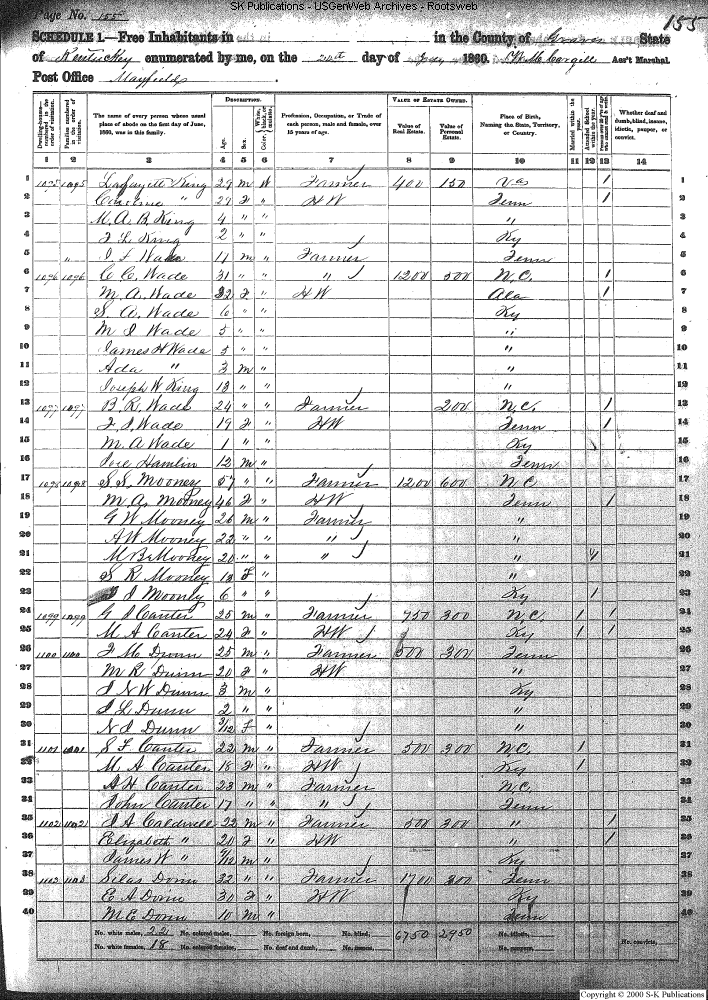 SK Publications - USGenWeb Archives - Rootsweb
Page No. 155
155
SCHEDULE 1.—Free Inhabitants in in the County of Graves State
of Kentucky enumerated by me, on the day of 1860. Ass't Marshal.
Post Office Mayfield
Dwelling-houses—numbered in the order of visitation.
Families numbered in the order of visitation.
The name of every person whose usual place of abode on the first day of June, 1860, was in this family.
DESCRIPTION.
Age.
Sex.
Color, White, black, or mulatto.
Profession, Occupation, or Trade of each person, male and female, over 15 years of age.
VALUE OF ESTATE OWNED.
Value of Real Estate.
Value of Personal Estate.
Place of Birth, Naming the State, Territory, or Country.
Married within the year.
Attended School within the year.
Whether deaf and dumb, blind, insane, idiotic, pauper, or convict.
1 2 3 4 5 6 7 8 9 10 11 12 13 14
1 1095 1095 Lafayett King 29 M W Farmer 400 150 Va / 1
2 " 27 F " HW Tenn / 2
3 M. A. B. King 4 " " " 3
4 F L King 2 " " Ky 4
5 " Wade 11 m " Farmer Tenn 5
6 1096 1096 C. C. Wade 31 " " " 1200 500 N.C. / 6
7 M. A. Wade 32 F " HW Ala / 7
8 S. A. Wade 6 " " Ky 8
9 M J Wade 5 " " " 9
10 James H Wade 5 " " " 10
11 Ada " 3 m " " 11
12 Joseph W King 13 " " " 12
13 1097 1097 B. R. Wade 24 " " Farmer 200 N.C. / 13
14 F. J. Wade 19 F " HW Tenn / 14
15 M. A Wade 1 " " Ky 15
16 Hamlin 12 m " Tenn 16
17 1098 1098 S. S. Mooney 57 " " Farmer 1200 600 N C 17
18 M. A. Mooney 46 F " HW Tenn / 18
19 G W Mooney 26 m " Farmer " 19
20 A W Mooney 22 " " " " 20
21 M B Mooney 20 " " " " 21
22 S R Mooney 13 F " " 22
23 J Mooney 6 " " Ky / 23
24 1099 1099 G J Canter 25 m " Farmer 750 300 N.C. / / 24
25 M A Canter 24 F " HW Ky / / 25
26 1100 1100 F M Dunn 25 m " Farmer 500 300 Tenn 26
27 M R Dunn 20 F " HW " 27
28 J N W Dunn 3 m " Ky 28
29 J L Dunn 2 " " " 29
30 N J Dunn 3/12 F " " 30
31 1101 1101 S F Canter 22 m " Farmer 500 300 N.C. / 31
32 M A Canter 18 F " HW Ky / 32
33 A H Canter 23 m " Farmer N.C. 33
34 John Canter 17 " " " Tenn 34
35 1102 1102 J A Caldwell 22 m " Farmer 500 300 " / 35
36 Elizabeth " 20 F " HW " / 36
37 James W " /12 m " Ky 37
38 1103 1103 Silas Donn 32 " " Farmer 1700 300 Tenn 38
39 E A Donn 30 F " HW Ky 39
40 M E Donn 10 m " Tenn 40
No. white males, 22 No. colored males, No. foreign born, No. blind, 6750 2950 No. idiotic,
No. white females, 18 No. colored females, No. deaf and dumb, No. insane, No. convicts,
Copyright © 2000 S-K Publications